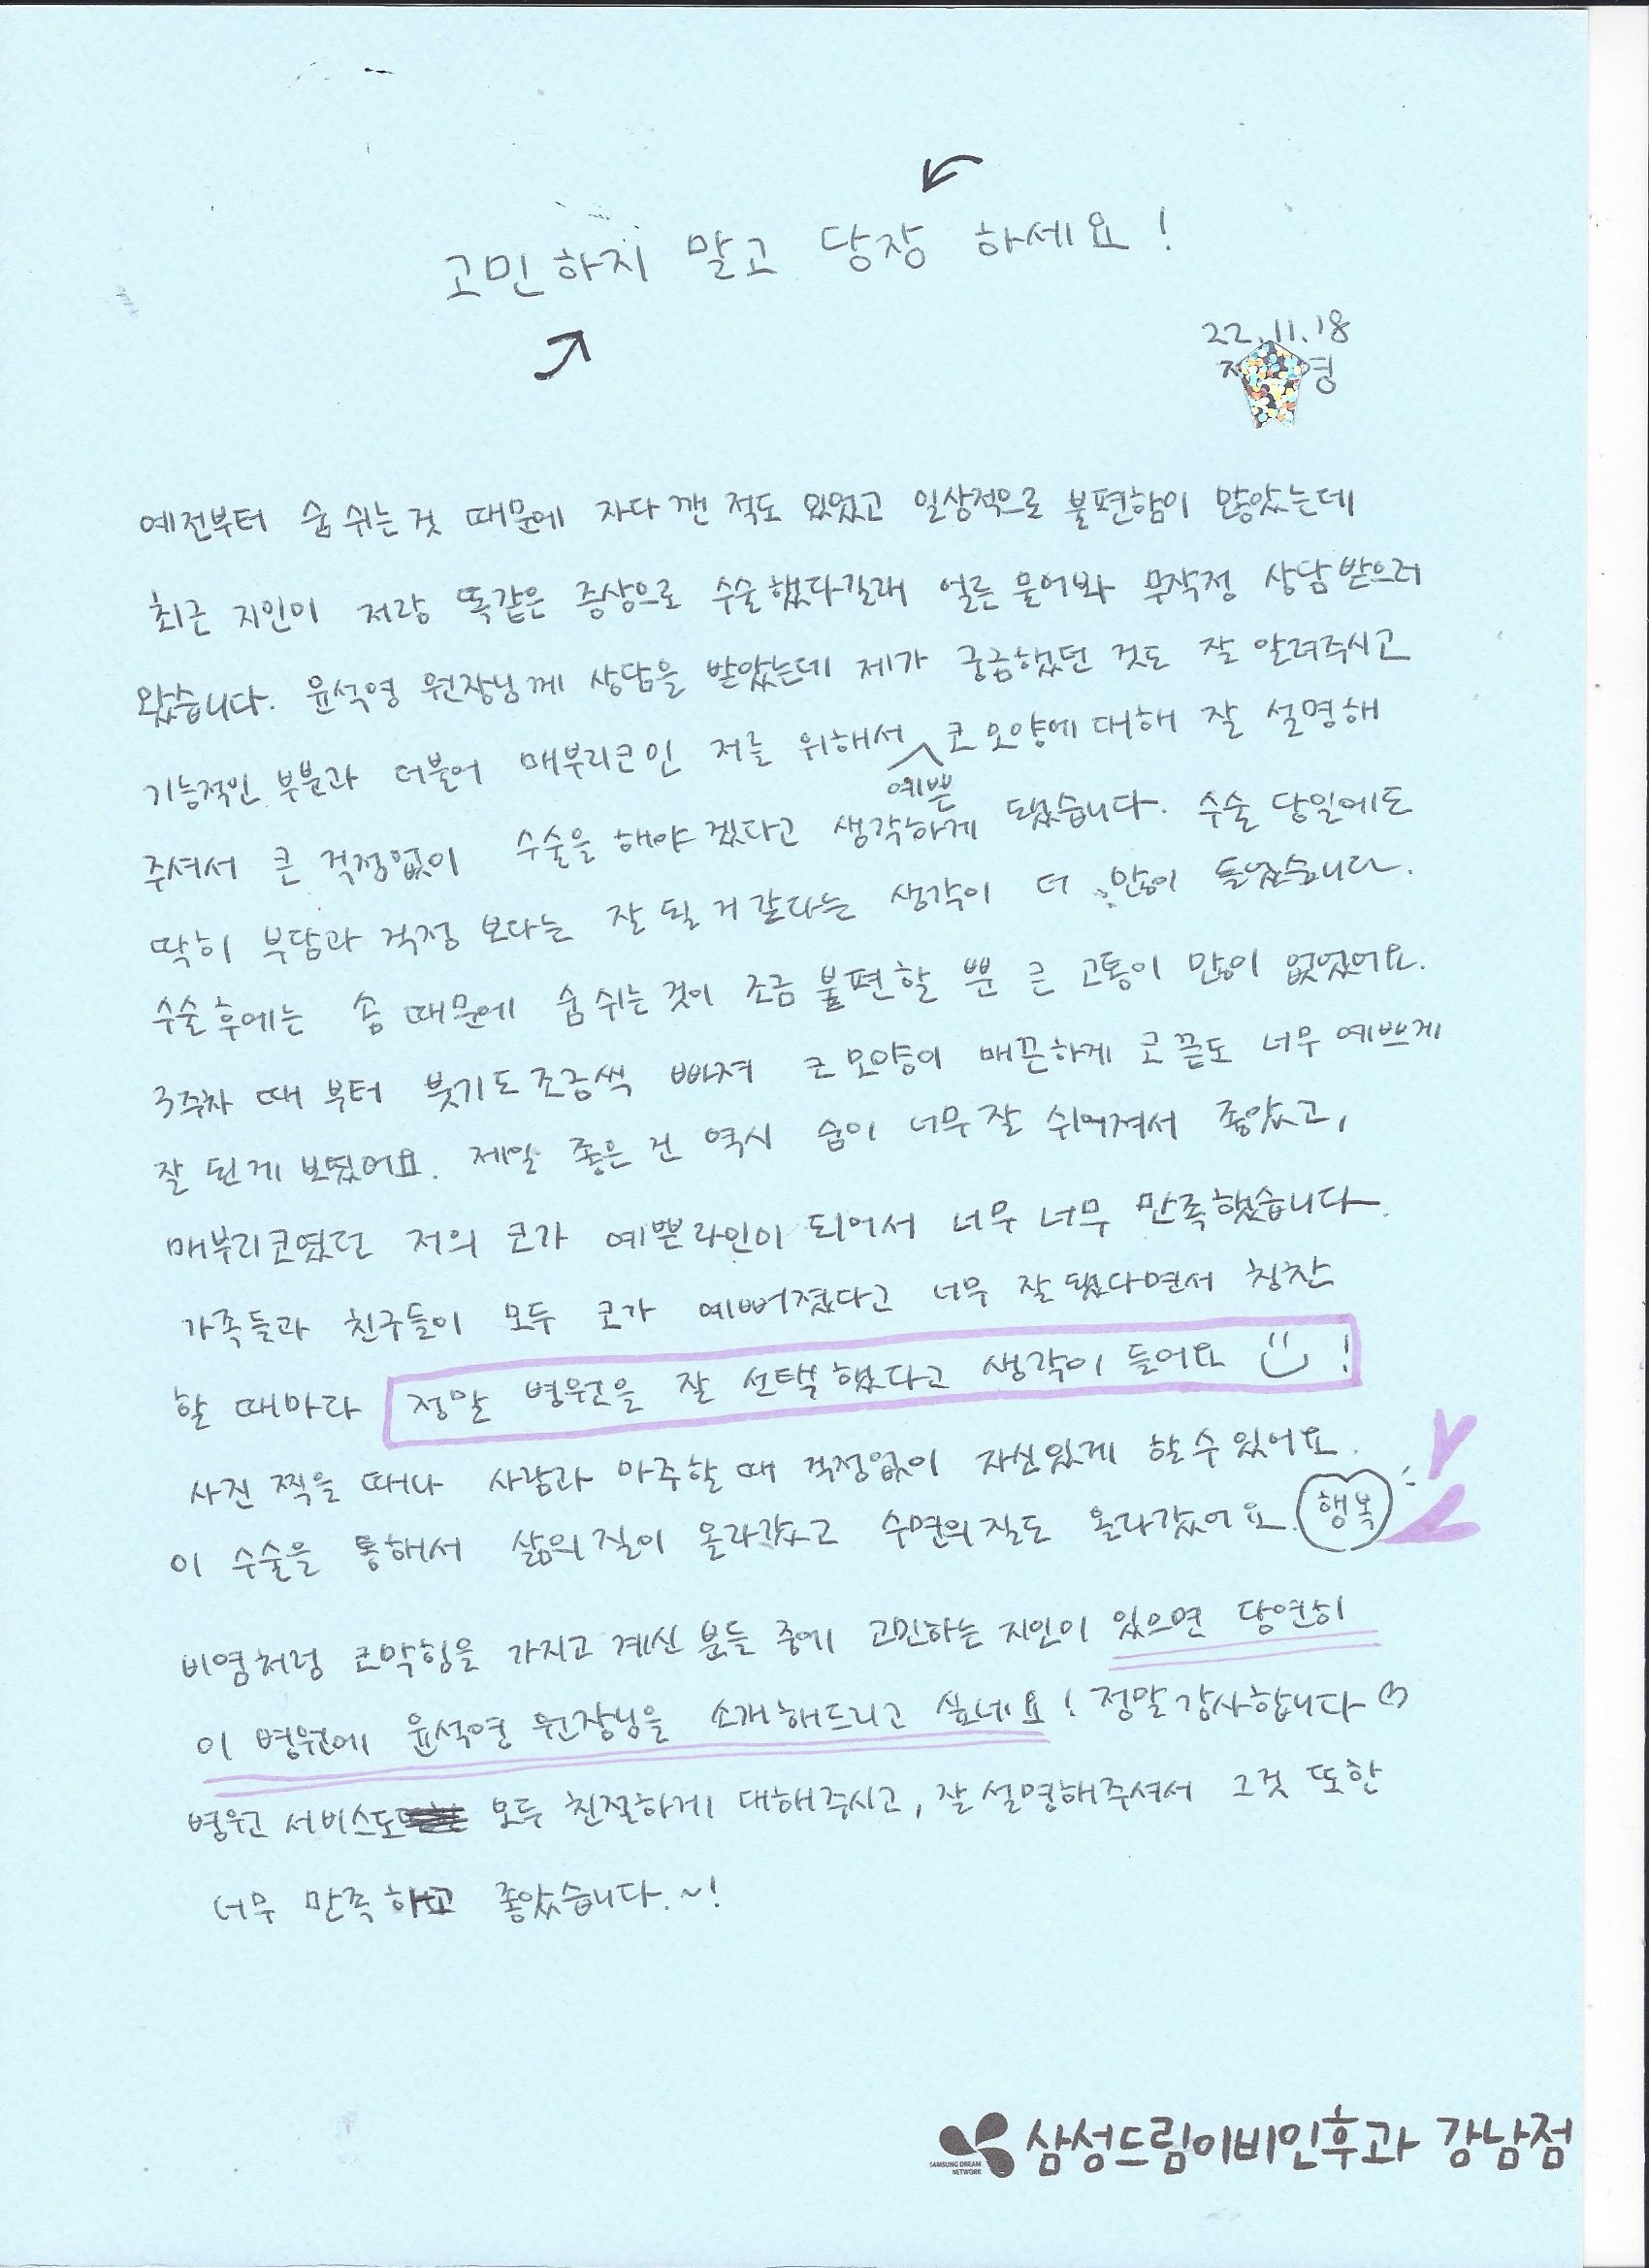 고민하지 말고 당장 하세요!
22.11.18
영
예전부터 숨 쉬는 것 때문에 자다 깬 적도 있었고 일상적으로 불편함이 많았는데
최근 지인이 저랑 똑같은 증상으로 수술했다길래 얼른 물어봐 무작정 상담받으러
왔습니다. 윤석영 원장님께 상담을 받았는데 제가 궁금했던 것도 잘 알려주시고
기능적인 부분과 더불어 매부리코인 저를 위해서 예쁜 코 모양에 대해 잘 설명해
주셔서 큰 걱정없이 수술을 해야 겠다고 생각하게 됐습니다. 수술 당일에도
딱히 부담과 걱정 보다는 잘 될 거 같다는 생각이 더 많이 들었습니다.
수술 후에는 솜 때문에 숨 쉬는 것이 조금 불편할 뿐 큰 고통이 많이 없었어요.
3주차 때 부터 붓기도 조금씩 빠져 코 모양이 매끈하게 코 끝도 너무 예쁘게
잘 된게 보였어요. 제일 좋은 건 역시 숨이 너무 잘 쉬어져서 좋았고,
매부리코였던 저의 코가 예쁜라인이 되어서 너무 너무 만족했습니다.
가족들과 친구들이 모두 코가 예뻐졌다고 너무 잘 됐다면서 칭찬
할 때마다 정말 병원을 잘 선택했다고 생각이 들어요 !
사진 찍을 때나 사람과 마주할 때 걱정없이 자신있게 할 수 있어요.
이 수술을 통해서 삶의 질이 올라갔고 수면의 질도 올라갔어요. 행복
비염처럼 코막힘을 가지고 계신 분들 중에 고민하는 지인이 있으면 당연히
이 병원에 윤석영 원장님을 소개해드리고 싶네요! 정말 감사합니다♡
병원 서비스도 모두 친절하게 대해주시고, 잘 설명해주셔서 그것 또한
너무 만족하고 좋았습니다.~!
삼성드림이비인후과 강남점
SAMSUNG DREAM
NETWORK